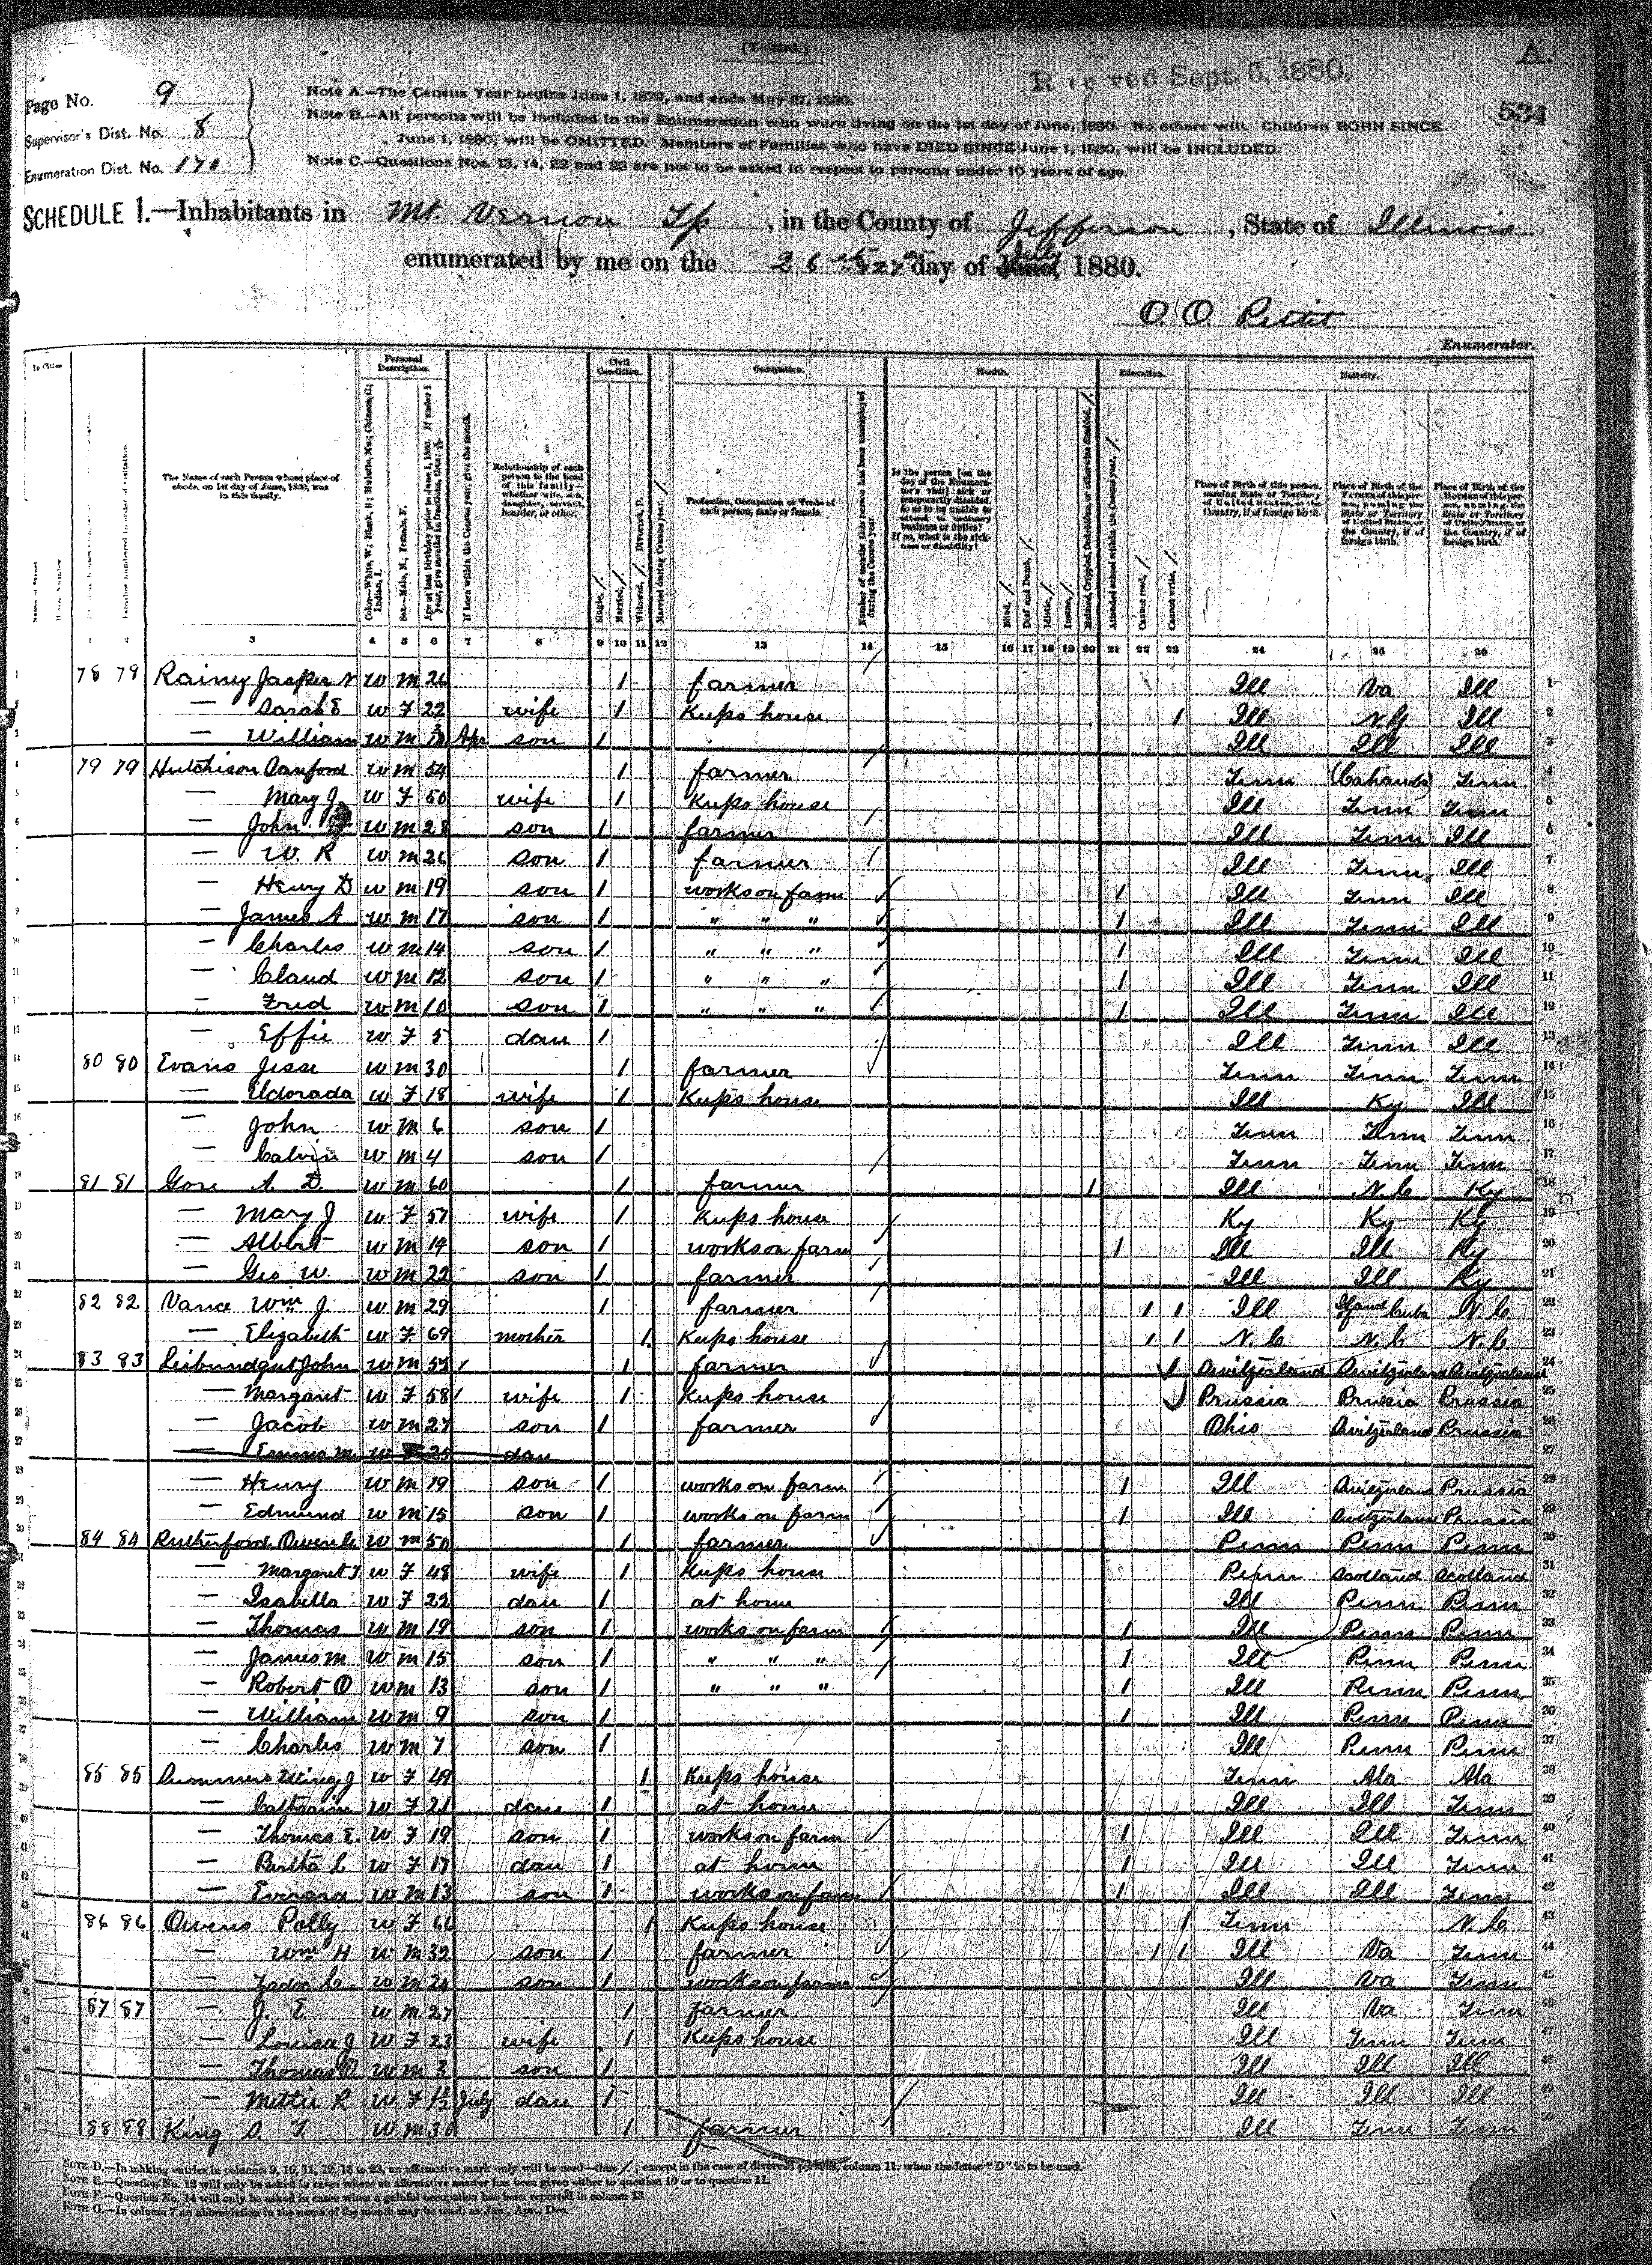 Received Sept. 6, 1880.
A
534
Page No. 9
Supervisor's Dist. No. 8
Enumeration Dist. No. 170
Note A.—The Census Year begins June 1, 1879, and ends May 31, 1880.
Note B.—All persons will be included in the Enumeration who were living on the 1st day of June, 1880. No others will. Children BORN SINCE
June 1, 1880, will be OMITTED. Members of Families who have DIED SINCE June 1, 1880, will be INCLUDED.
Note C.—Questions Nos. 13, 14, 22 and 23 are not to be asked in respect to persons under 10 years of age.
SCHEDULE 1.—Inhabitants in Mt. Vernon Tp, in the County of Jefferson, State of Illinois
enumerated by me on the 26th & 27th day of July, 1880.
O. O. Pettit
Enumerator.
Personal Description. Civil Condition. Occupation. Health. Education. Nativity.
The Name of each Person whose place of abode, on 1st day of June, 1880, was in this family.
Relationship of each person to the head of this family—whether wife, son, daughter, servant, boarder, or other.
Profession, Occupation or Trade of each person, male or female.
3 4 5 6 7 8 9 10 11 12 13 14 15 16 17 18 19 20 21 22 23 24 25 26
1 78 79 Rainey Jasper N W M 26 / farmer Ill Va Ill 1
— Sarah E W F 22 wife / Keeps house / Ill Ill 2
— William W M Apr son / Ill Ill Ill 3
79 79 Hutchison Sanford W M 54 / farmer Tenn Tenn 4
— Mary J W F 50 wife / Keeps house Ill Tenn Tenn 5
— John W M 28 son / farmer Ill Tenn Ill 6
— W. R W M 26 son / farmer Ill Tenn Ill 7
— Henry D W M 19 son / works on farm / Ill Tenn Ill 8
— James A W M 17 son / " " " / Ill Tenn Ill 9
— Charles W M 14 son / " " " / Ill Tenn Ill 10
— Claud W M 12 son / " " " / Ill Tenn Ill 11
— Fred W M 10 son / " " " / Ill Tenn Ill 12
— Effie W F 5 dau / Ill Tenn Ill 13
80 80 Evans Jesse W M 30 / farmer Tenn Tenn Tenn 14
— Eldorada W F 18 wife / Keeps house Ill Ky Ill 15
— John W M 6 son / Tenn Tenn Tenn 16
— Calvin W M 4 son / Tenn Tenn Tenn 17
81 81 Gore A. D. W M 60 / farmer / Ill N.C Ky 18
— Mary J W F 57 wife / Keeps house Ky Ky Ky 19
— Albert W M 14 son / works on farm / Ill Ill Ky 20
— Geo W. W M 22 son / farmer Ill Ill Ky 21
82 82 Vance Wm J. W M 29 / farmer / / Ill Cuba N.C 22
— Elizabeth W F 69 mother / Keeps house / / N.C N.C N.C 23
83 83 Leibundgut John W M 57 / farmer / Switzerland Switzerland Switzerland 24
— Margaret W F 58 wife / Keeps house / Prussia Prussia Prussia 25
— Jacob W M 27 son / farmer Ohio Switzerland Prussia 26
— Emma M W F 25 dau 27
— Henry W M 19 son / works on farm / Ill Switzerland Prussia 28
— Edmund W M 15 son / works on farm / Ill Switzerland Prussia 29
84 84 Rutherford W M 50 / farmer Penn Penn Penn 30
— Margaret J W F 48 wife / Keeps house Penn Scotland Scotland 31
— Isabella W F 22 dau / at home Ill Penn Penn 32
— Thomas W M 19 son / works on farm / Ill Penn Penn 33
— James M W M 15 son / " " " / Ill Penn Penn 34
— Robert O W M 13 son / " " " / Ill Penn Penn 35
— William W M 9 son / / Ill Penn Penn 36
— Charles W M 7 son / Ill Penn Penn 37
85 85 Summers J W F 49 / Keeps house Tenn Ala Ala 38
— Catharine W F 21 dau / at home Ill Ill Tenn 39
— Thomas E. W F 19 son / works on farm / Ill Ill Tenn 40
— Bertha L W F 17 dau / at home / Ill Ill Tenn 41
— W M 13 son / works on farm / Ill Ill Tenn 42
86 86 Owens Polly W F 66 / Keeps house / Tenn N.C 43
— Wm H W M 32 son / farmer / / Ill Va Tenn 44
— Zadoc C. W M 24 son / works on farm Ill Va Tenn 45
87 87 — J. E W M 27 / farmer Ill Va Tenn 46
— Louisa J W F 23 wife / Keeps house Ill Tenn Tenn 47
— Thomas W M 3 son / Ill Ill Ill 48
— Mettie R W F July dau / Ill Ill Ill 49
88 88 King W M / farmer Ill Tenn Tenn 50
NOTE D.—In making entries in columns 9, 10, 11, 12, 16 to 23, an affirmative mark only will be used—thus /, except in the case of divorced persons, column 11, when the letter "D" is to be used.
NOTE E.—Question No. 12 will only be asked in cases where an affirmative answer has been given either to question 10 or to question 11.
NOTE F.—Question No. 14 will only be asked in cases when a gainful occupation has been reported in column 13.
NOTE G.—In column 7 an abbreviation in the name of the month may be used, as Jan., Apr., Dec.